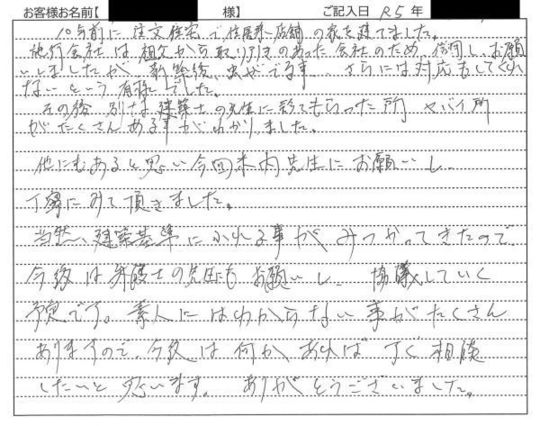 お客様お名前【 様】 ご記入日 R5 年
10年前に注文住宅で住居兼店舗の家を建てました。
施行会社は祖父から取り引きのあった会社のため、信用しお願
いしましたが、新築後、虫がでる事、さらには対応もしてくれ
ないという有様でした。
その後 別な建築士の先生に診てもらった所 ヤバイ所
がたくさんある事がわかりました。
他にもあると思い今回木内先生にお願いし、
丁寧にみて頂きました。
当然、建築基準にふれる事がみつかってきたので
今後は弁護士の先生もお願いし、協議していく
予定です。素人にはわからない事がたくさん
ありますので、今後は何かあればすぐ相談
したいと思います。ありがとうございました。